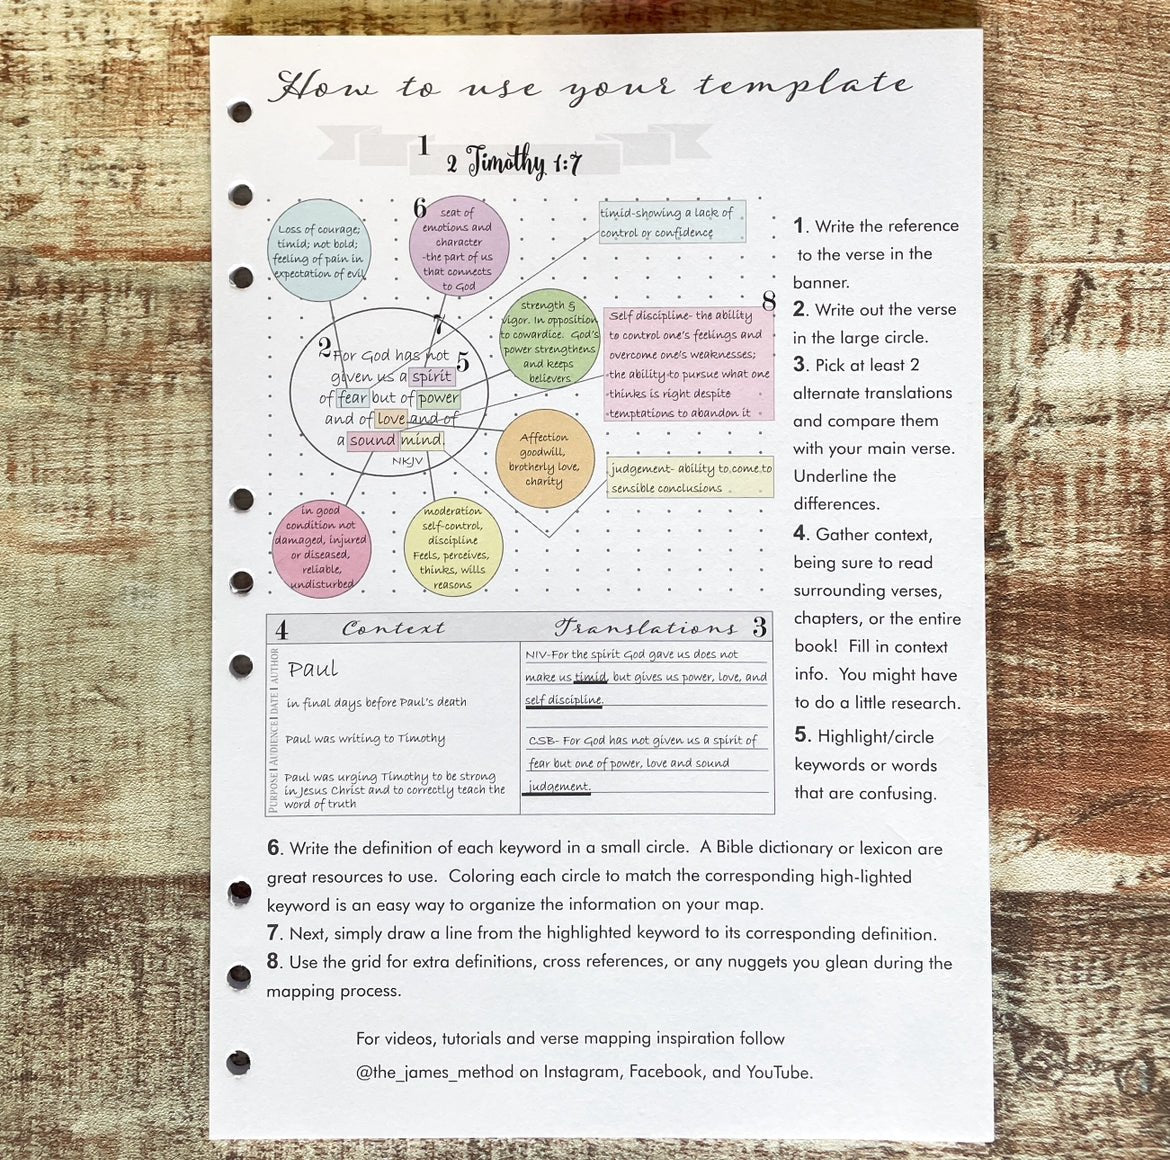 How to use your template
1
2 Timothy 1:7
Loss of courage;
timid; not bold;
feeling of pain in
expectation of evil
6
seat of
emotions and
character
-the part of us
that connects
to God
timid-showing a lack of
control or confidence
strength &
vigor. In opposition
to cowardice. God's
power strengthens
and keeps
believers
8
Self discipline- the ability
to control one's feelings and
overcome one's weaknesses;
-the ability to pursue what one
thinks is right despite
temptations to abandon it
7
2
5
For God has not
given us a spirit
of fear but of power
and of love and of
a sound mind.
NKJV
Affection
goodwill,
brotherly love,
charity
judgement- ability to come to
sensible conclusions
in good
condition not
damaged, injured
or diseased,
reliable,
undisturbed
moderation
self-control,
discipline
Feels, perceives,
thinks, wills
reasons
1. Write the reference
to the verse in the
banner.
2. Write out the verse
in the large circle.
3. Pick at least 2
alternate translations
and compare them
with your main verse.
Underline the
differences.
4. Gather context,
being sure to read
surrounding verses,
chapters, or the entire
book! Fill in context
info. You might have
to do a little research.
5. Highlight/circle
keywords or words
that are confusing.
4 Context
PURPOSE | AUDIENCE | DATE | AUTHOR
Paul
in final days before Paul's death
Paul was writing to Timothy
Paul was urging Timothy to be strong
in Jesus Christ and to correctly teach the
word of truth
Translations 3
NIV-For the spirit God gave us does not
make us timid, but gives us power, love, and
self discipline.
CSB- For God has not given us a spirit of
fear but one of power, love and sound
judgement.
6. Write the definition of each keyword in a small circle. A Bible dictionary or lexicon are
great resources to use. Coloring each circle to match the corresponding high-lighted
keyword is an easy way to organize the information on your map.
7. Next, simply draw a line from the highlighted keyword to its corresponding definition.
8. Use the grid for extra definitions, cross references, or any nuggets you glean during the
mapping process.
For videos, tutorials and verse mapping inspiration follow
@the_james_method on Instagram, Facebook, and YouTube.